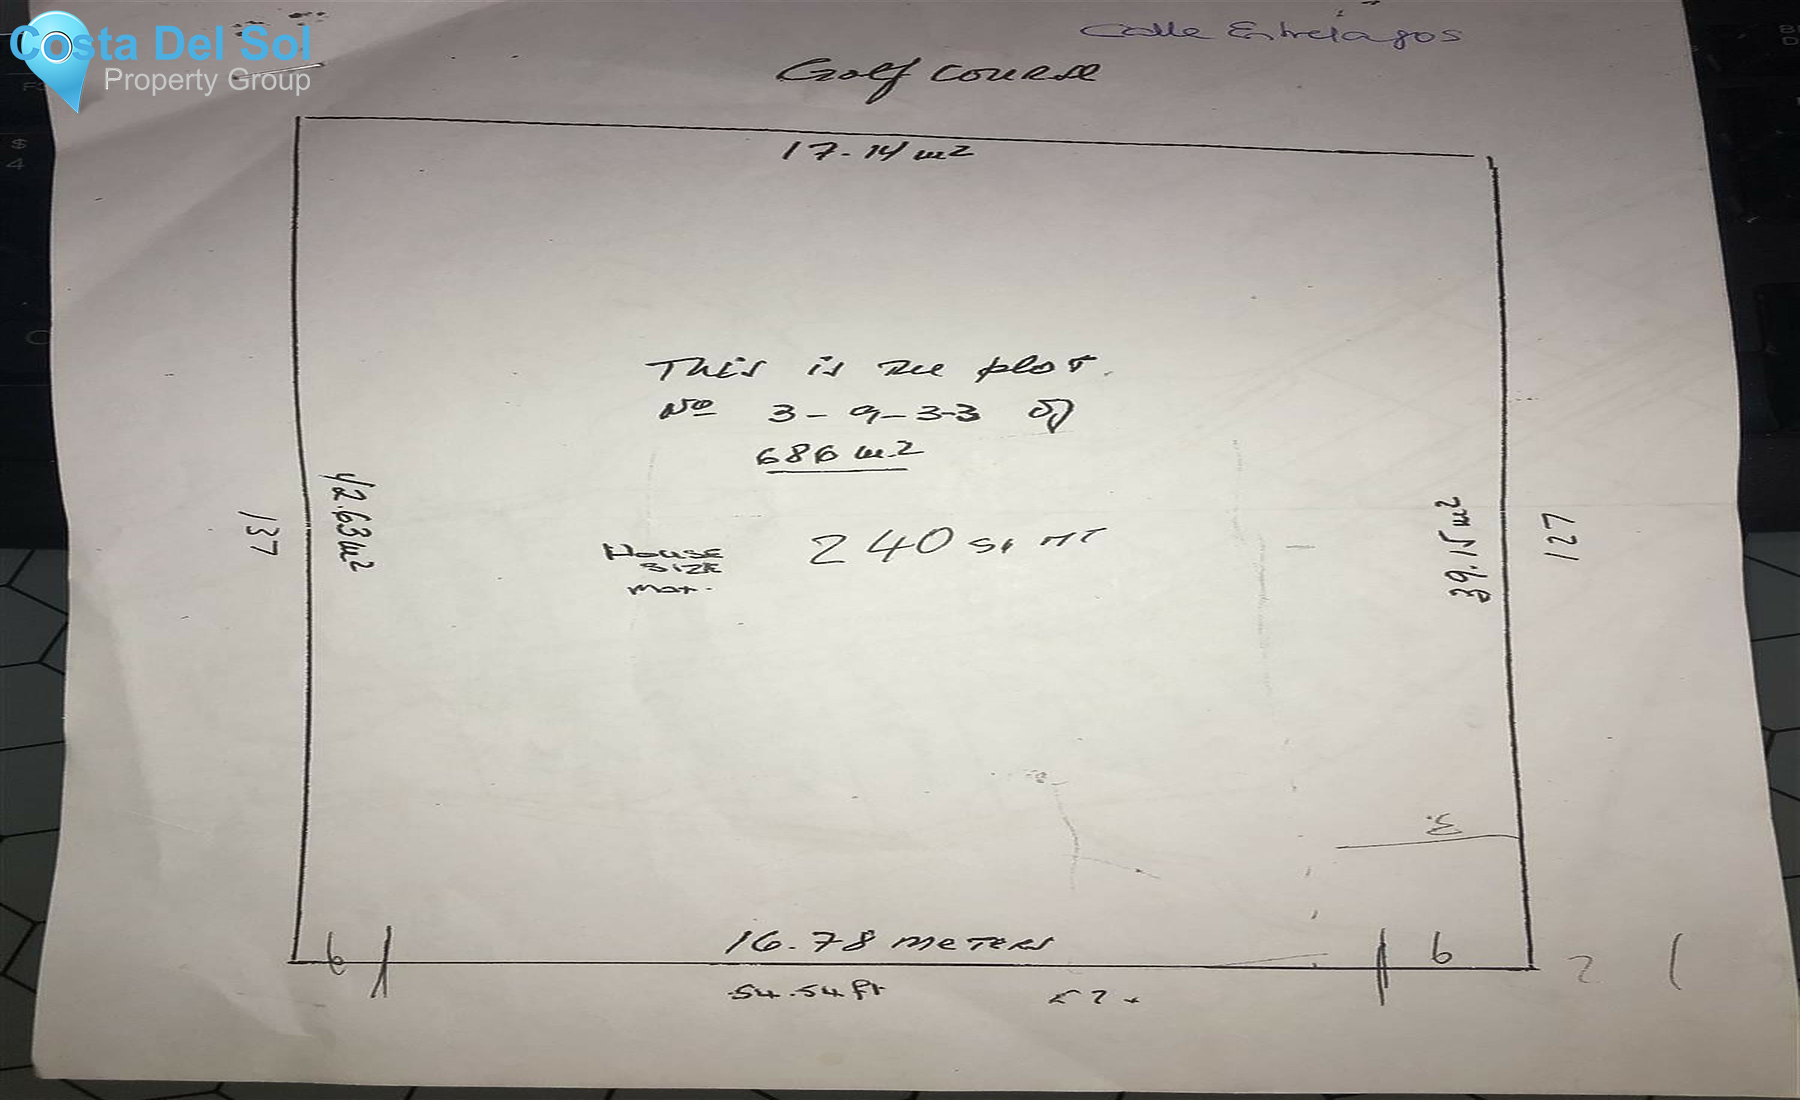 Costa Del Sol
Property Group
Calle Entrelagos
Golf course
17.14 m2
This is the plot.
Nº 3-9-33 of
686 m2
42.63 m2
137
House
size
max.
240
39.15 m2
127
3.
16.78 meters
6
6
54.54 ft
2
$
4